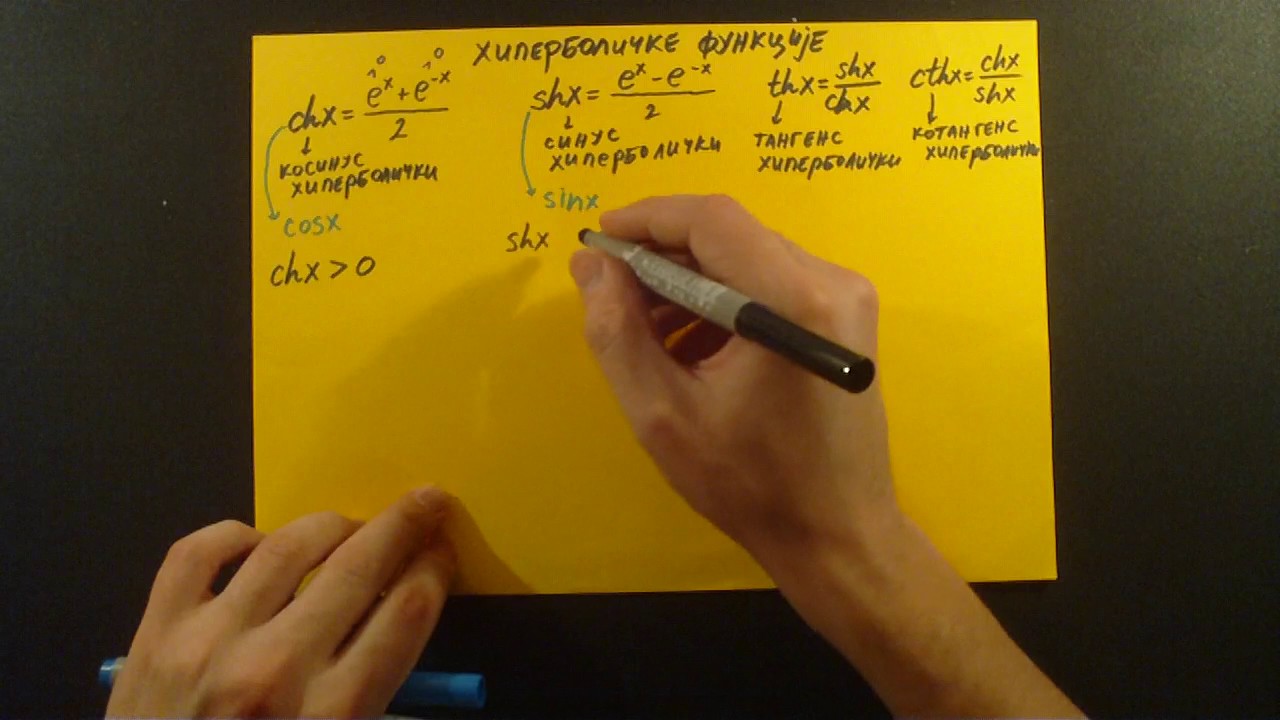 ХИПЕРБОЛИЧКЕ ФУНКЦИЈЕ
>0 >0
chx = e^x + e^-x / 2
↓
КОСИНУС
ХИПЕРБОЛИЧКИ
cosx
chx > 0
shx = e^x - e^-x / 2
↓
СИНУС
ХИПЕРБОЛИЧКИ
sinx
shx
thx = shx / chx
↓
ТАНГЕНС
ХИПЕРБОЛИЧКИ
cthx = chx / shx
↓
КОТАНГЕНС
ХИПЕРБОЛИЧКИ